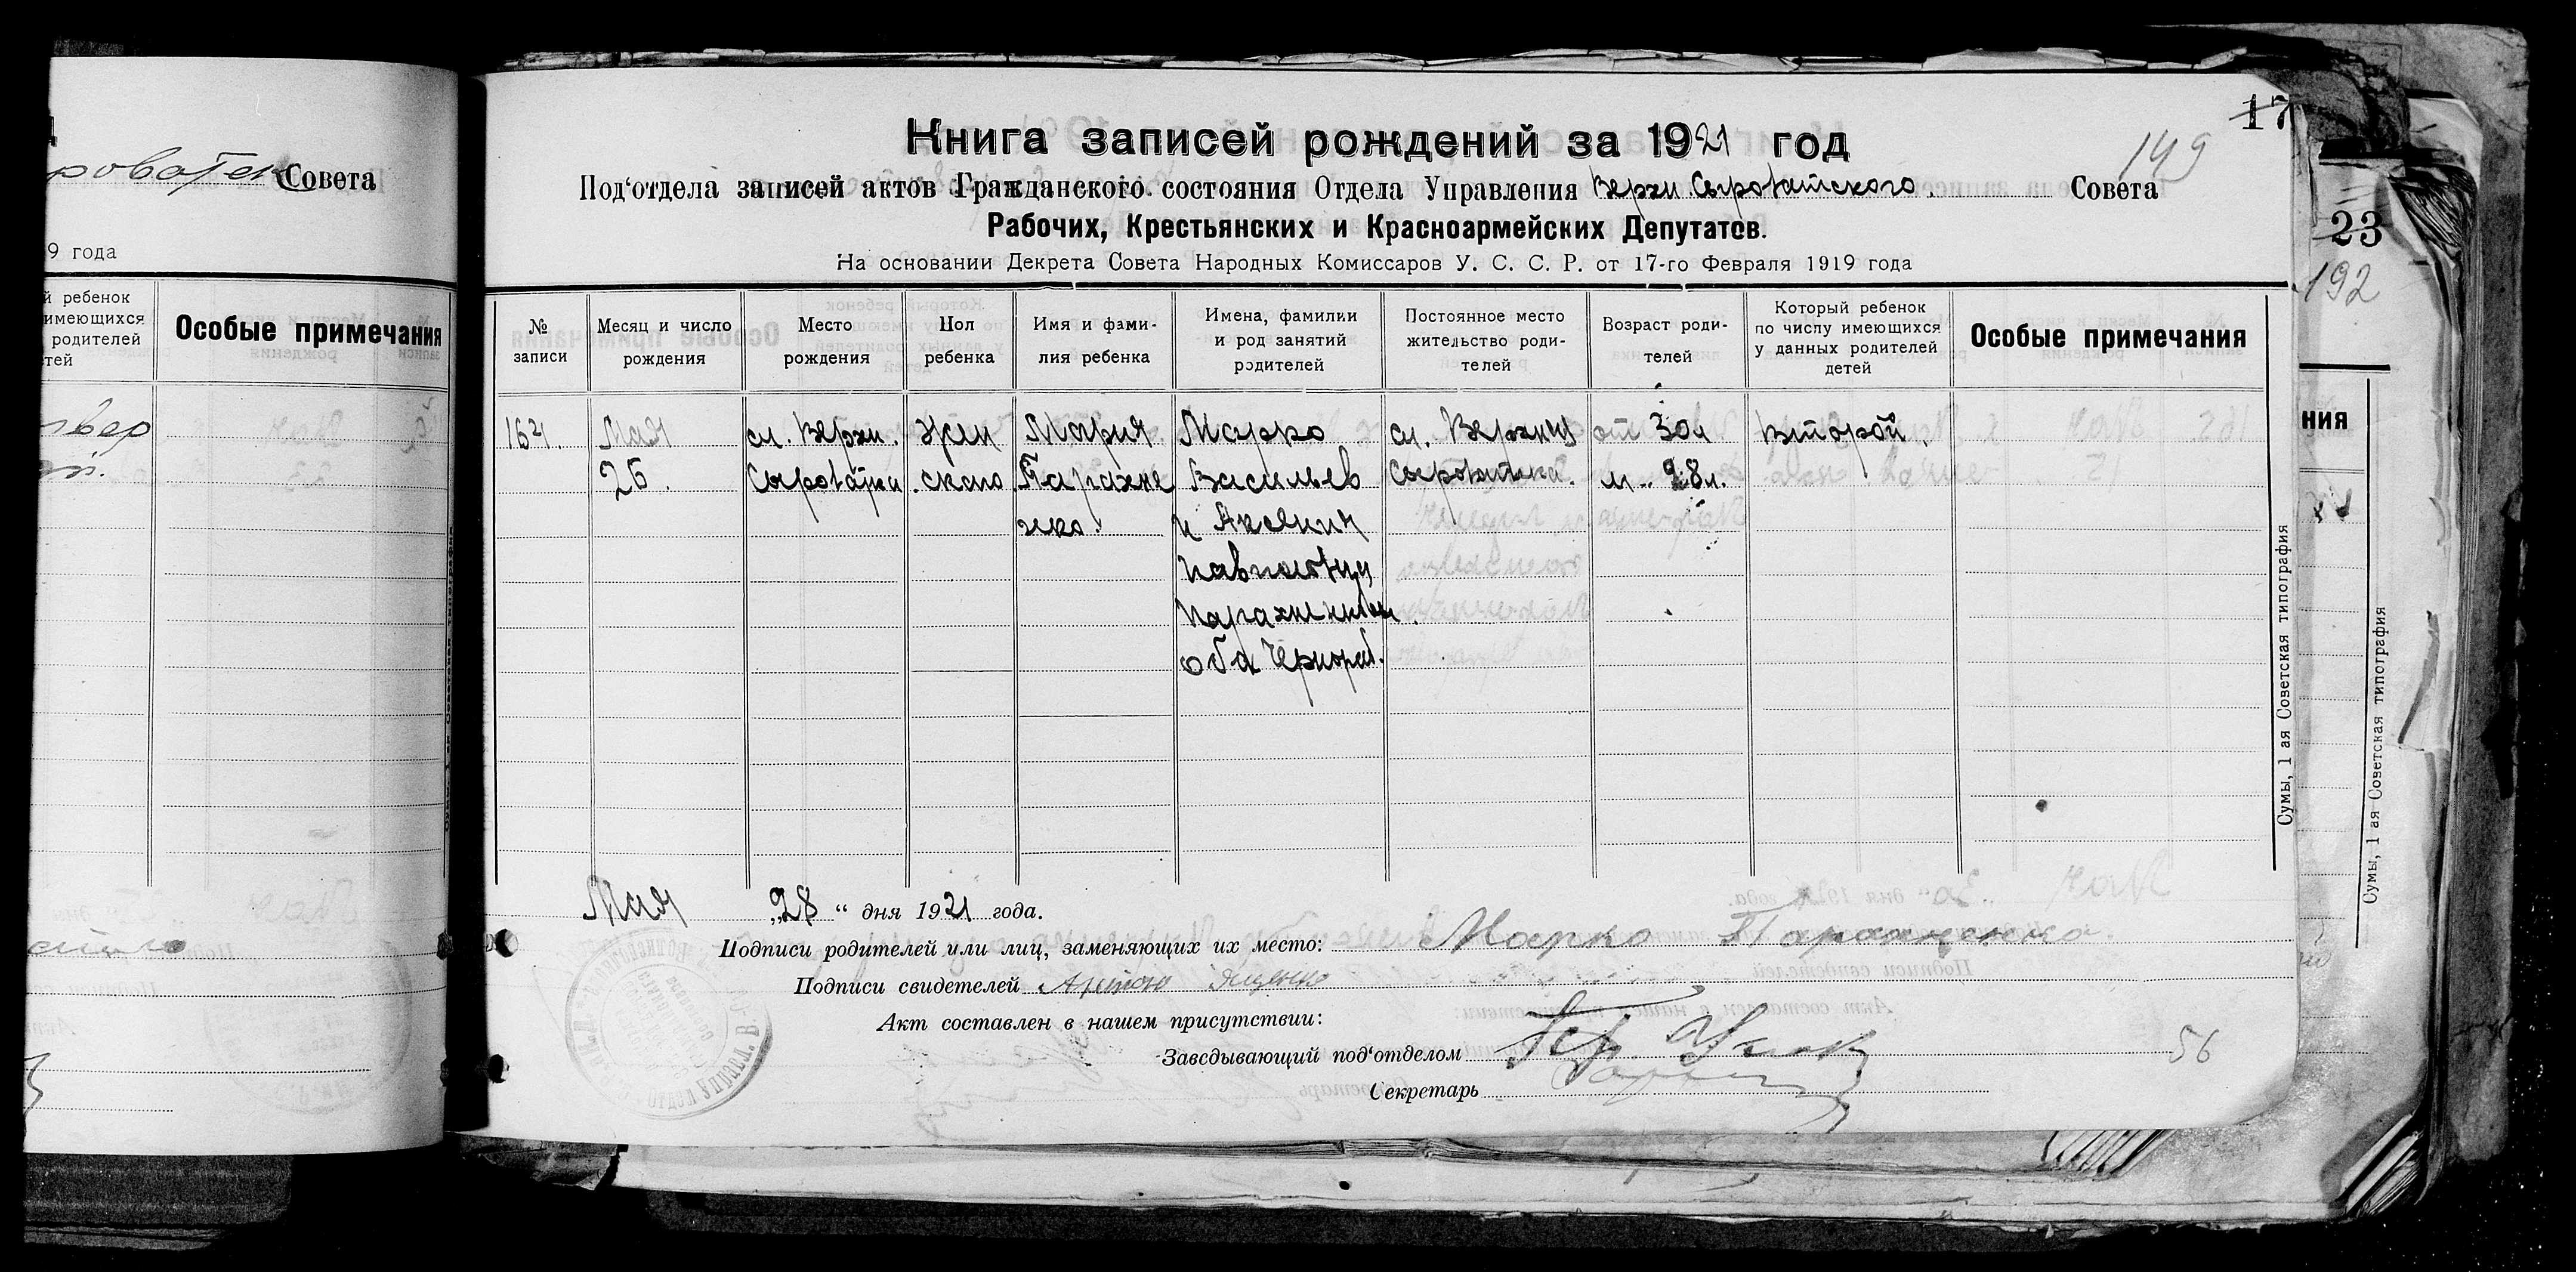 роватек Совета
9 года
й ребенок
имеющихся
родителей
тей
Особые примечания
17
149
Книга записей рождений за 1921 год
Под‘отдела записей актов Гражданского состояния Отдела Управления Верхн. Сыроватского Совета
Рабочих, Крестьянских и Красноармейских Депутатов.
На основании Декрета Совета Народных Комиссаров У. С. С. Р. от 17-го Февраля 1919 года
№ записи
Месяц и число рождения
Место рождения
Пол ребенка
Имя и фами-
лия ребенка
Имена, фамилии
и род занятий
родителей
Постоянное место
жительство роди-
телей
Возраст роди-
телей
Который ребенок
по числу имеющихся
у данных родителей
детей
Особые примечания
Мая
26.
сл. Верхн.
Сыроватка
жен
ского.
Мария
Парахне
нко.
Марко
Васильев
и
Парахненковы
оба Чернораб.
сл. Верхняя
Сыроватка.
от 30 л
м. 28 л.
Второй.
Сумы, 1 ая Советская типография
Мая „28“ дня 1921 года.
Подписи родителей или лиц, заменяющих их место: Марко
Подписи свидетелей Антон Яценко
Акт составлен в нашем присутствии:
Заведывающий под‘отделом
Секретарь
56
23
192
ния
Сумы, 1 ая Советская типография